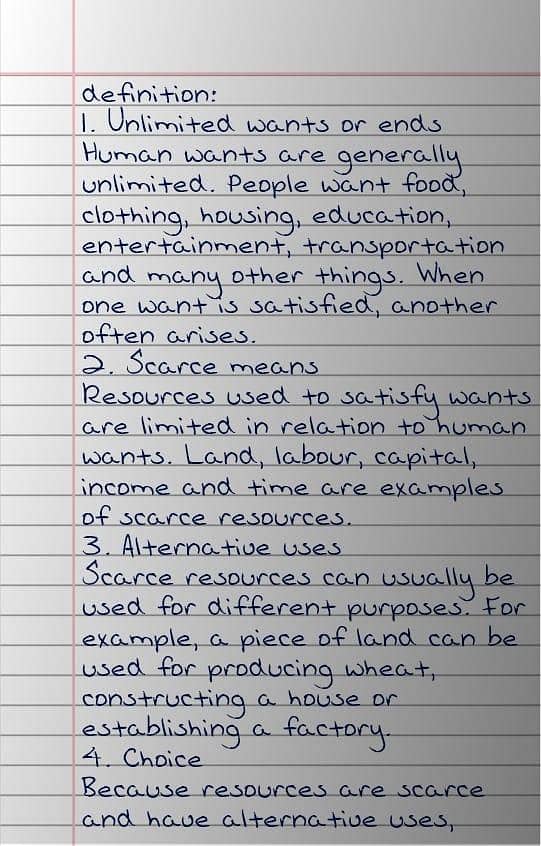 definition:
1. Unlimited wants or ends
Human wants are generally
unlimited. People want food,
clothing, housing, education,
entertainment, transportation
and many other things. When
one want is satisfied, another
often arises.
2. Scarce means
Resources used to satisfy wants
are limited in relation to human
wants. Land, labour, capital,
income and time are examples
of scarce resources.
3. Alternative uses
Scarce resources can usually be
used for different purposes. For
example, a piece of land can be
used for producing wheat,
constructing a house or
establishing a factory.
4. Choice
Because resources are scarce
and have alternative uses,